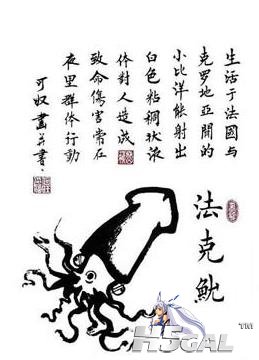 生活于法國与
克罗地亞間的
小比洋能射出
白色粘稠状液
体對人造成
致命傷害常在
夜里群体行動
可奴畫并書
法克魷
H5GAL
TM